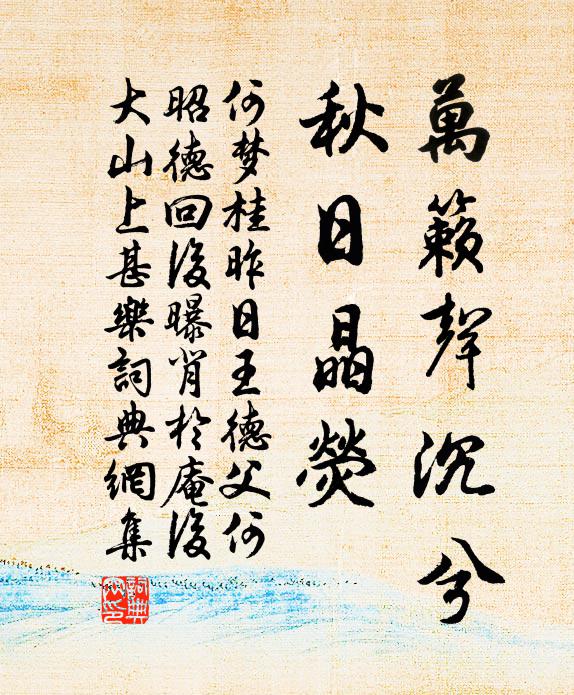 萬籟聲沉兮
秋日晶熒
何梦桂昨日王德父何
昭德回後曝肖於庵後
大山上甚樂詞典網集